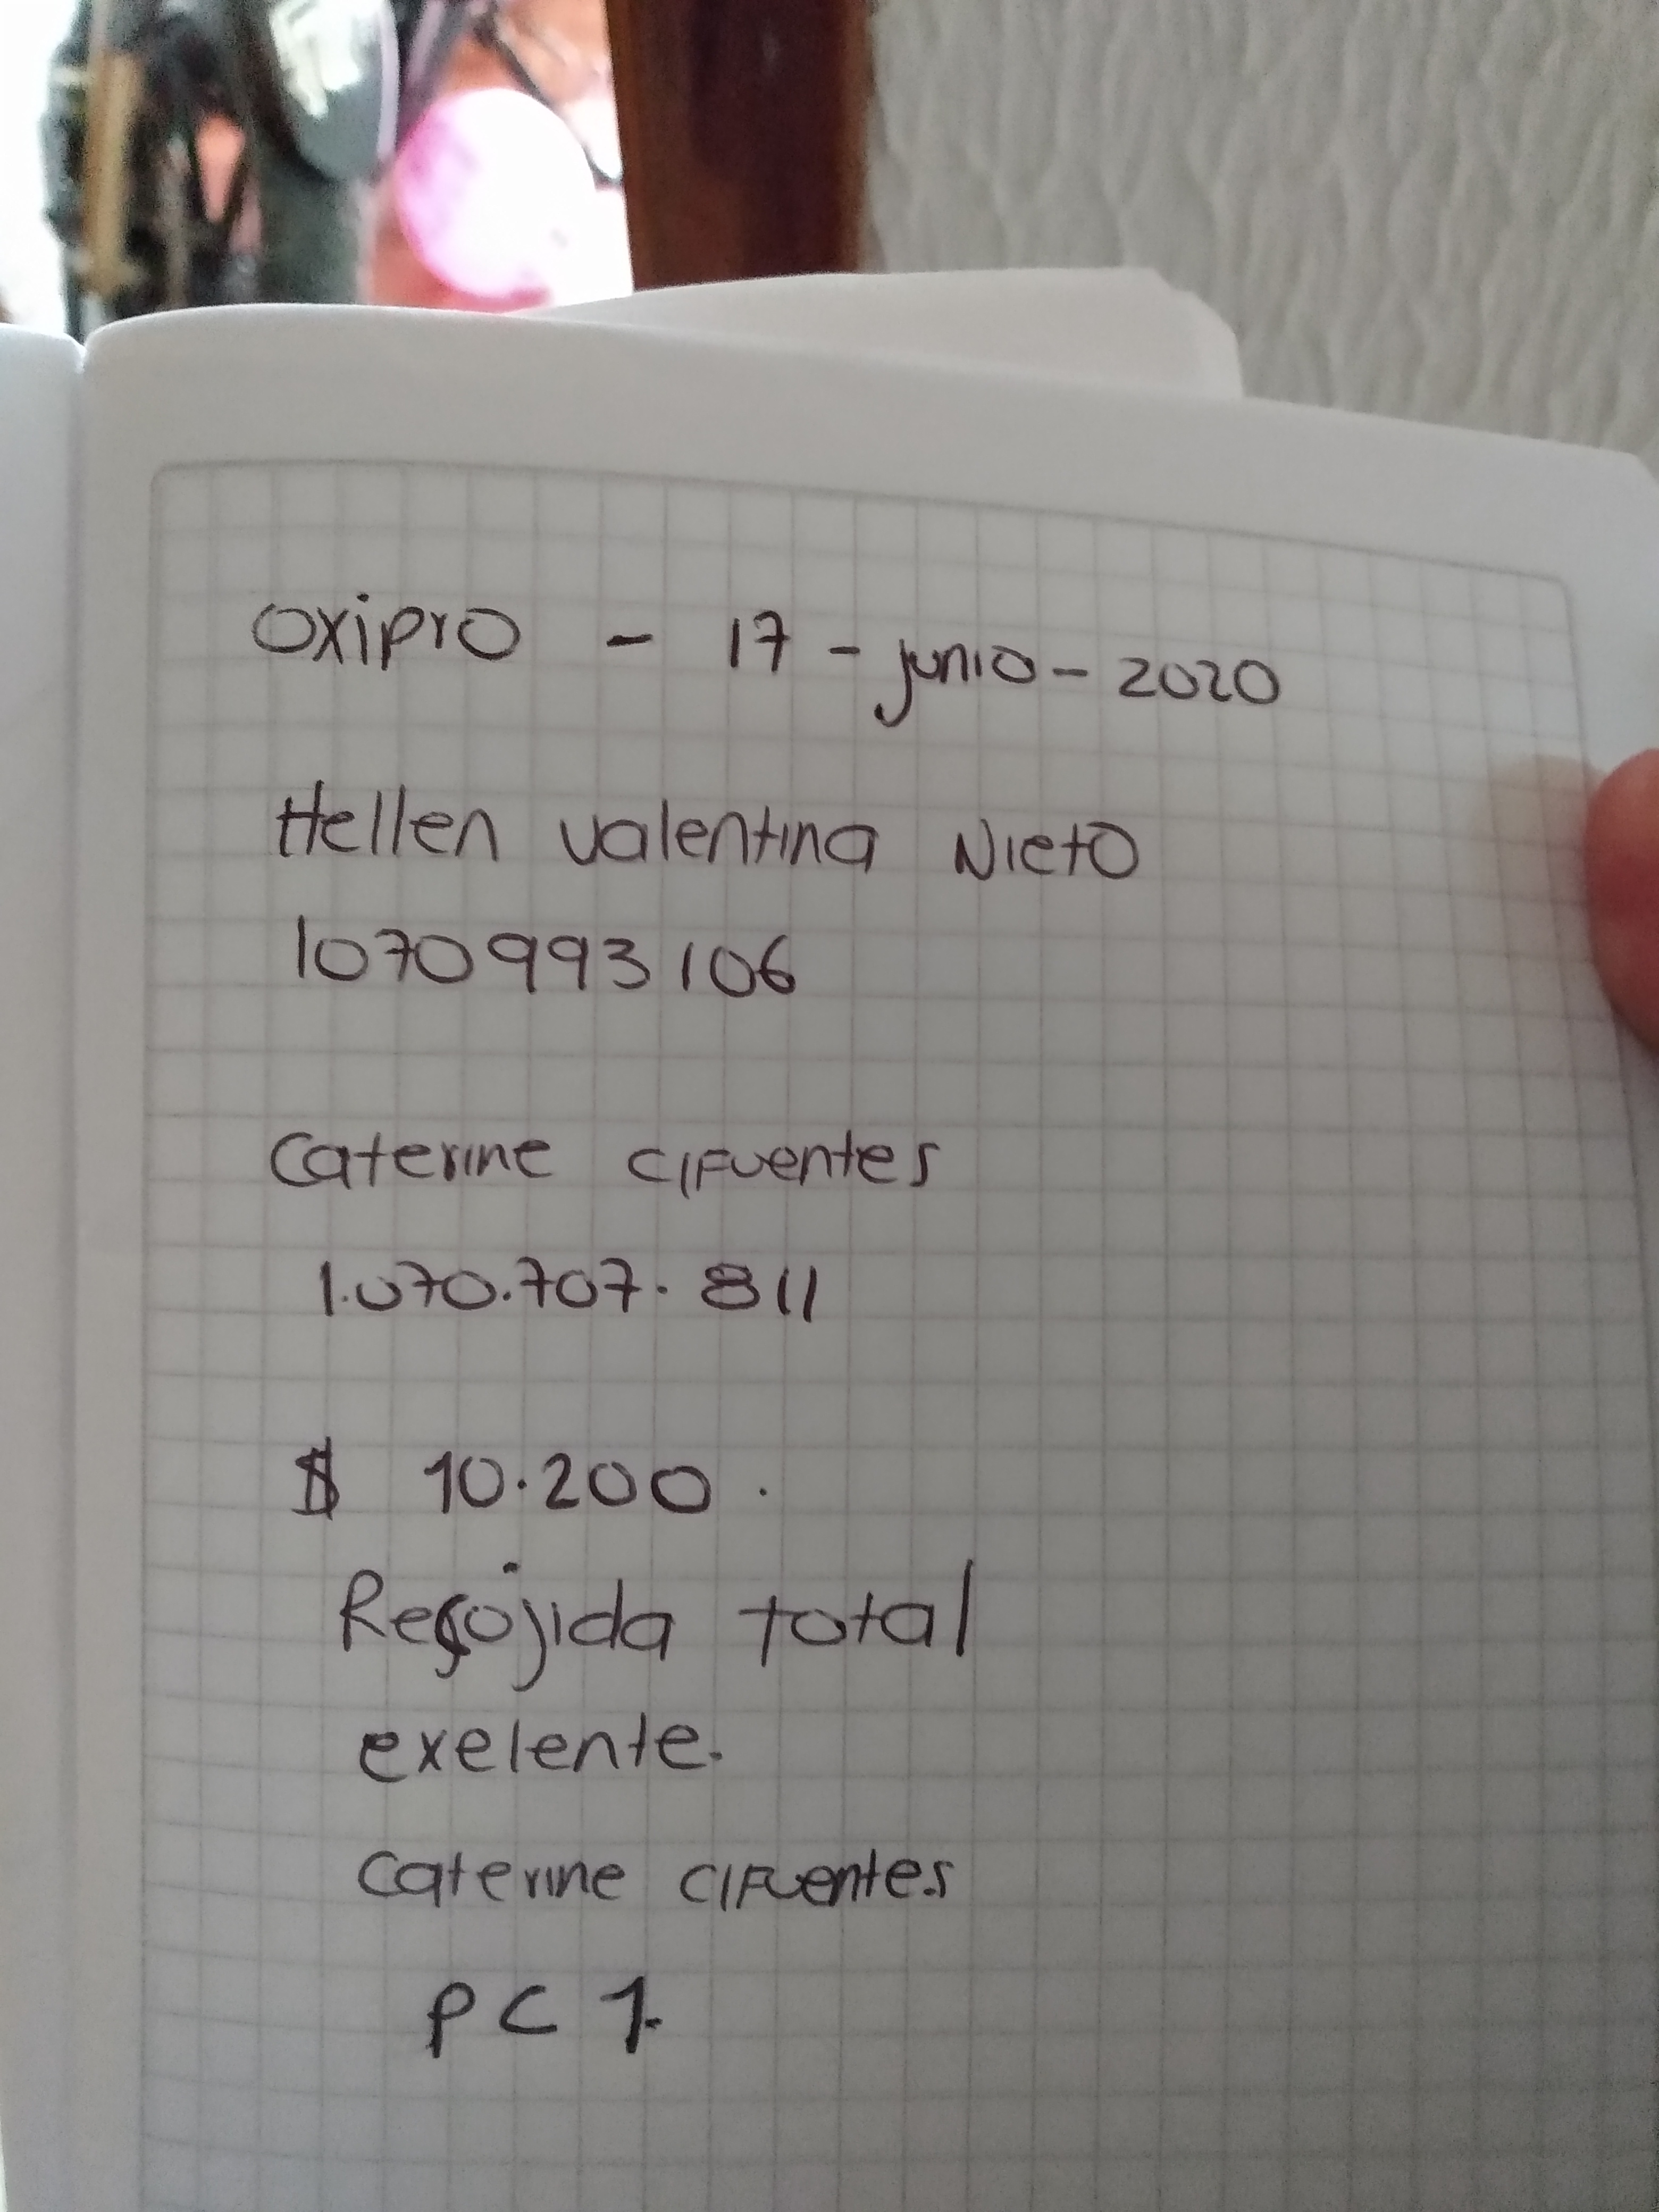 oxipro - 17 - junio - 2020
Hellen valentina Nieto
1070993106
Caterine Cifuentes
1.070.707.811
$ 10.200.
Recojida total
exelente.
Caterine Cifuentes
PC 1.